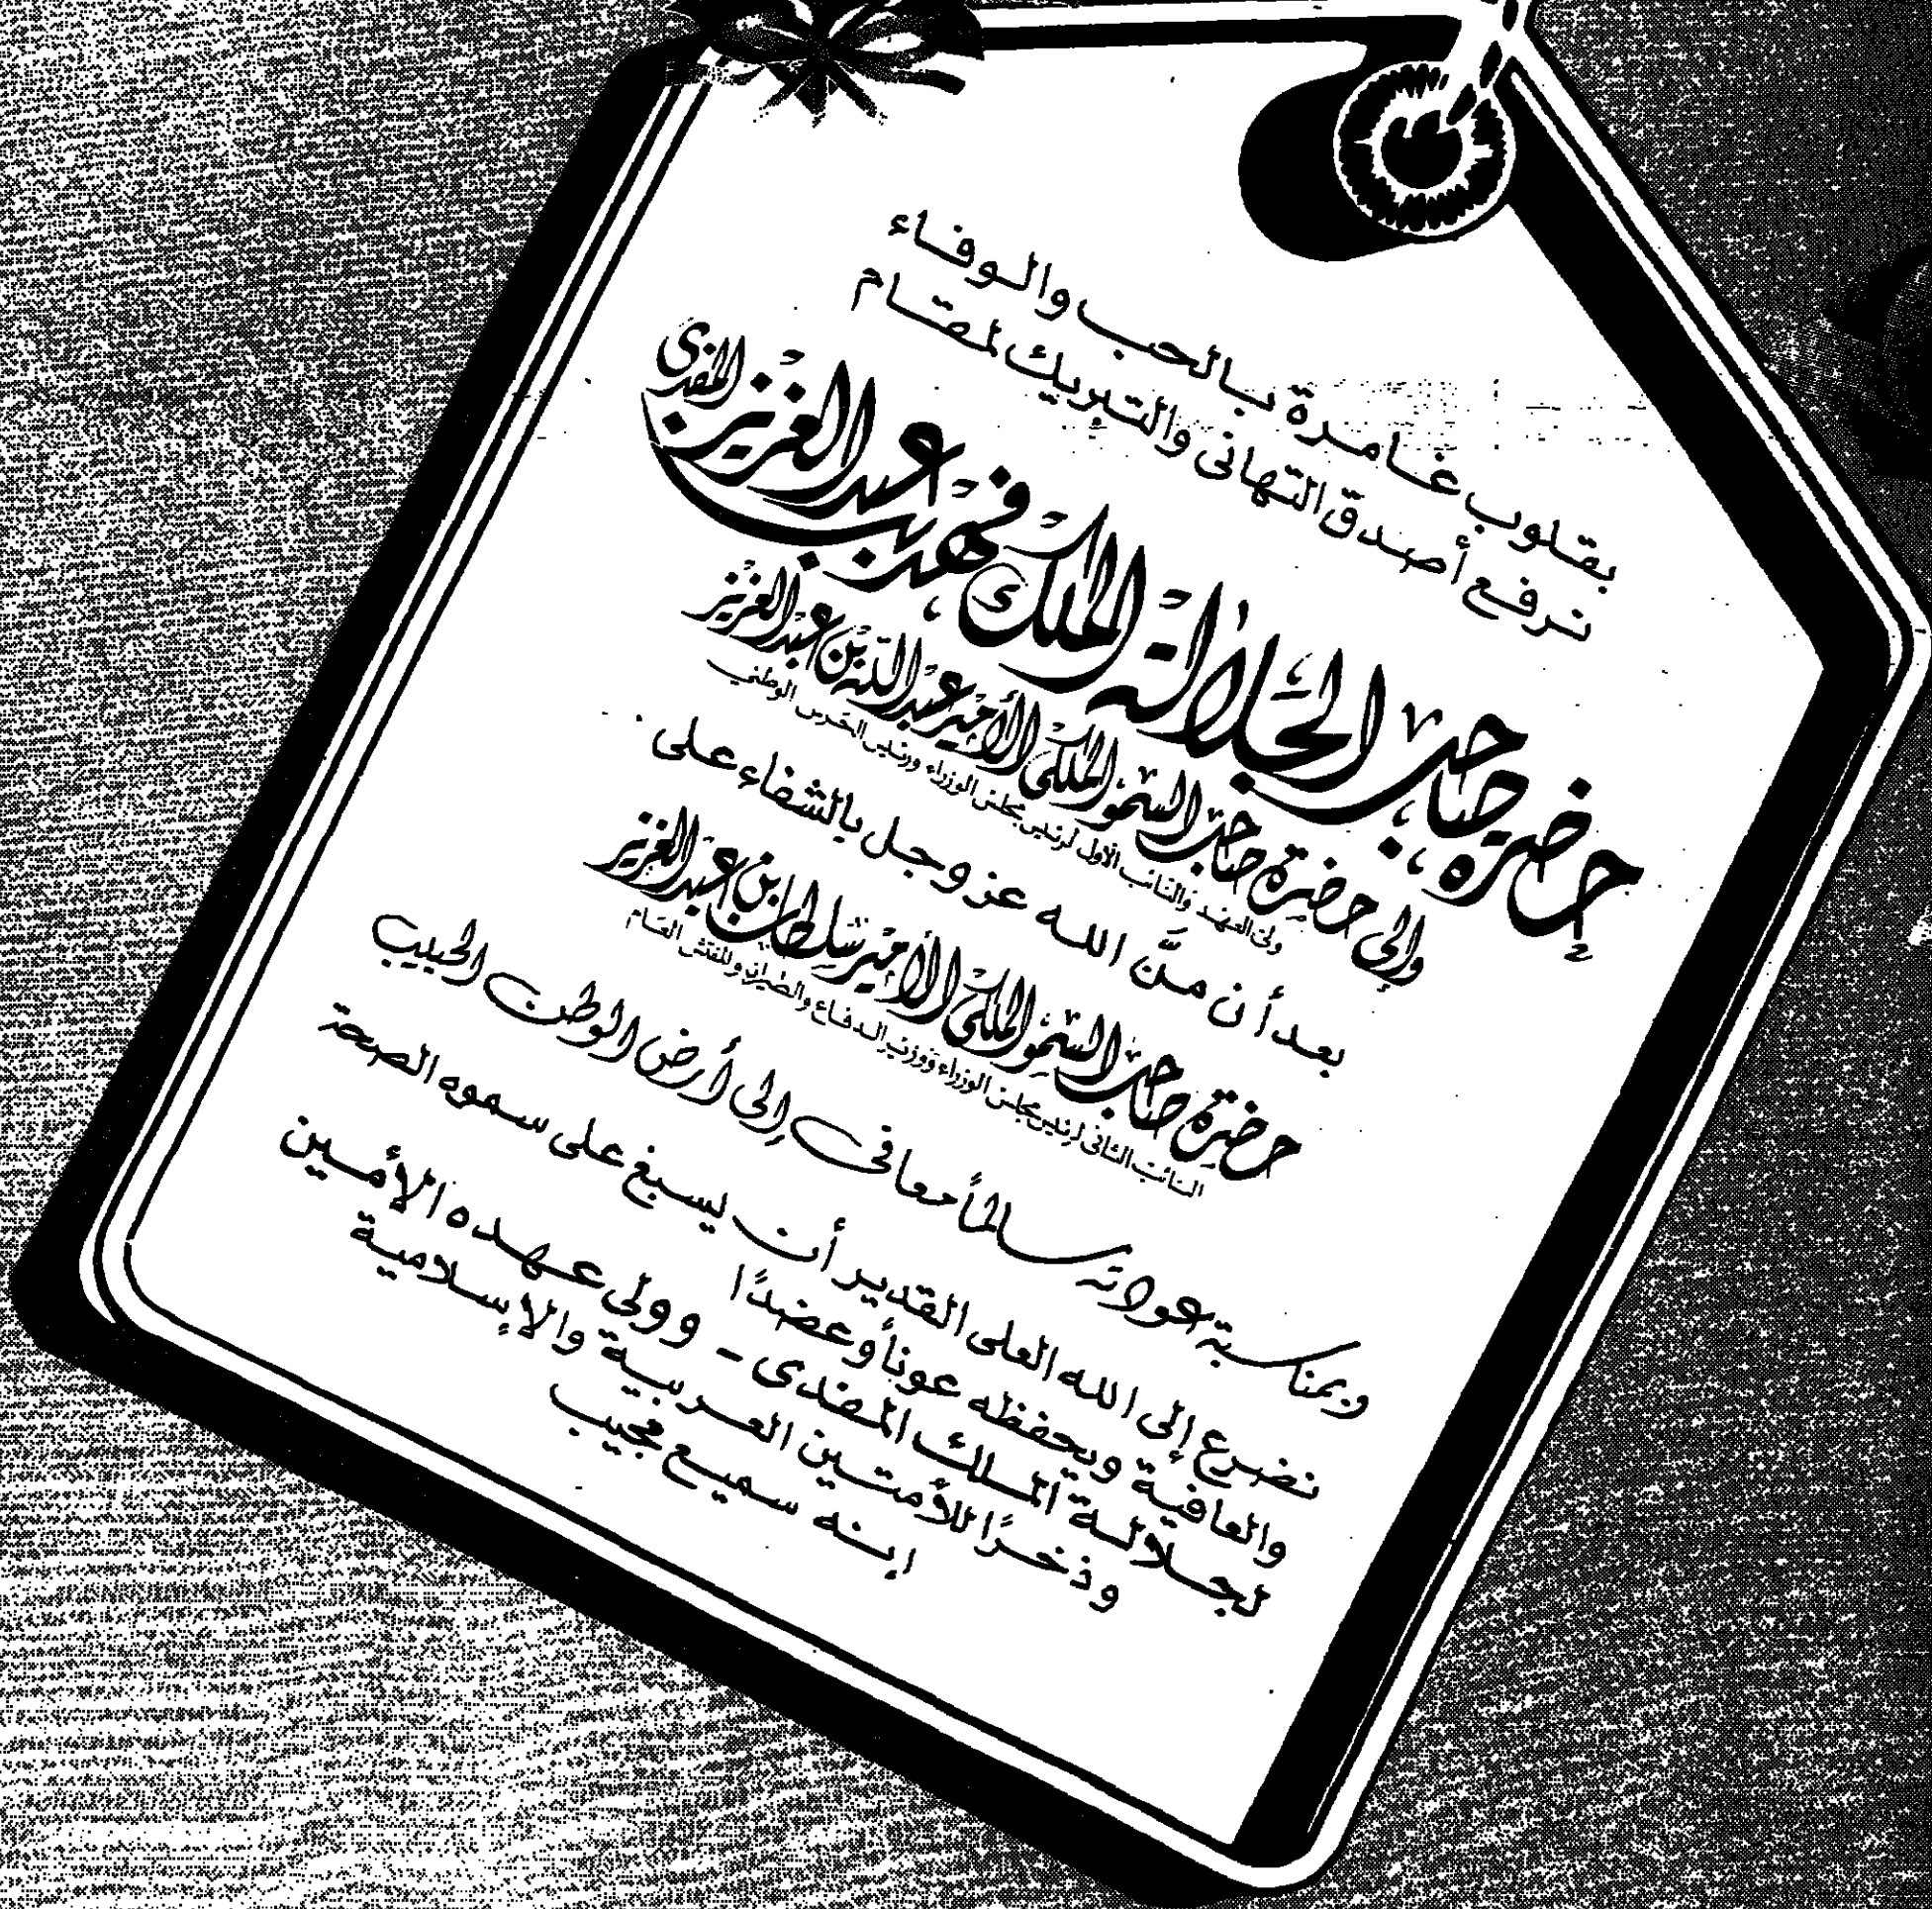 بقلوب غامرة بالحب والوفاء
نرفع أصدق التهانى والتبريك لمقام
حضرة صاحب الجلالة الملك فهد بن عبد العزيز المفدى
وإلى حضرة صاحب السمو الملكى الأمير عبد الله بن عبد العزيز
ولى العهد والنائب الأول لرئيس مجلس الوزراء ورئيس الحرس الوطنى
بعد أن منَّ الله عز وجل بالشفاء على
حضرة صاحب السمو الملكى الأمير سلطان بن عبد العزيز
النائب الثانى لرئيس مجلس الوزراء ووزير الدفاع والطيران والمفتش العام
وبمناسبة عودته سالماً معافى إلى أرض الوطن الحبيب
نضرع إلى الله العلى القدير أن يسبغ على سموه الصحة
والعافية ويحفظه عوناً وعضدًا
لجلالة الملك المفدى - وولى عهده الأمين
وذخرًا للأمتين العربية والإسلامية
إنه سميع مجيب